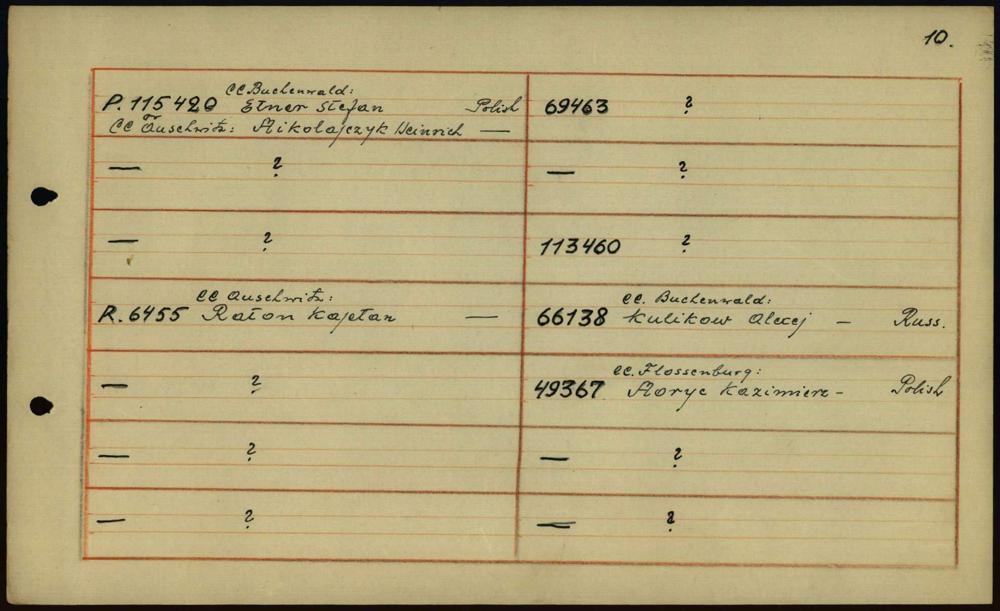 10.
CC Buchenwald:
P. 115420 Etner Stefan Polish
or
CC Auschwitz: Mikolajczyk Heinrich —
— ?
— ?
CC Auschwitz:
R. 6455 Raton Kajetan —
— ?
— ?
— ?
69463 ?
— ?
113460 ?
CC. Buchenwald:
66138 Kulikow Alexej — Russ.
CC. Flossenburg:
49367 Moryc Kazimierz - Polish
— ?
— ?